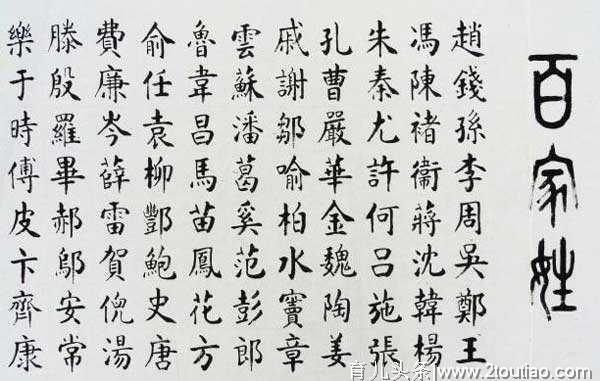 百家姓
趙錢孫李周吳鄭王
馮陳褚衛蔣沈韓楊
朱秦尤許何呂施張
孔曹嚴華金魏陶姜
戚謝鄒喻柏水竇章
雲蘇潘葛奚范彭郎
魯韋昌馬苗鳳花方
俞任袁柳酆鮑史唐
費廉岑薛雷賀倪湯
滕殷羅畢郝鄔安常
樂于時傅皮卞齊康
育儿头条 www.2toutiao.com